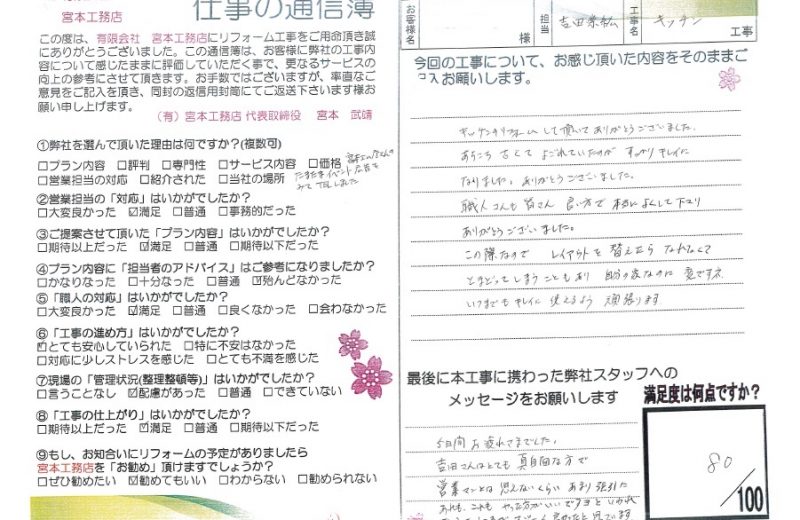 宮本工務店
仕事の通信簿
この度は、有限会社 宮本工務店にリフォーム工事をご用命頂き誠
にありがとうございました。この通信簿は、お客様に弊社の工事内
容について感じたままに評価していただく事で、更なるサービスの
向上の参考にさせて頂きます。お手数ではございますが、率直なご
意見をご記入を頂き、同封の返信用封筒にてご返送下さいます様お
願い申し上げます。
(有)宮本工務店 代表取締役 宮本 武靖
①弊社を選んで頂いた理由は何ですか?(複数可)
□プラン内容 □評判 □専門性 □サービス内容 □価格
□営業担当の対応 □紹介された □当社の場所
たまたまイベント広告を
みてTELしました
②営業担当の「対応」はいかがでしたか?
□大変良かった ☑満足 □普通 □事務的だった
③ご提案させて頂いた「プラン内容」はいかがでしたか?
□期待以上だった ☑満足 □普通 □期待以下だった
④プラン内容に「担当者のアドバイス」はご参考になりましたか?
□かなりなった □十分なった □普通 ☑殆んどなかった
⑤「職人の対応」はいかがでしたか?
□大変良かった ☑満足 □普通 □良くなかった □会わなかった
⑥「工事の進め方」はいかがでしたか?
☑とても安心していられた □特に不安はなかった
□対応に少しストレスを感じた □とても不満を感じた
⑦現場の「管理状況(整理整頓等)」はいかがでしたか?
□言うことなし ☑配慮があった □普通 □できていない
⑧「工事の仕上がり」はいかがでしたか?
□期待以上だった ☑満足 □普通 □期待以下だった
⑨もし、お知合いにリフォームの予定がありましたら
宮本工務店を「お勧め」頂けますでしょうか?
□ぜひ勧めたい ☑勧めてもいい □わからない □勧められない
お客様名 様 担当 吉田 工事名 キッチン 工事
今回の工事について、お感じ頂いた内容をそのままご
記入お願いします。
キッチンリフォームして頂いてありがとうございました。
あちこち古くてよごれていたのがすっかりキレイに
なりました。ありがとうございました。
職人さんも皆さん良い方で本当によくして下さり
ありがとうございました。
この際なのでレイアウトを替えたらなれなくて
とまどってしまうこともあり自分の家なのに変ですネ
いつまでもキレイに使えるよう頑張ります
最後に本工事に携わった弊社スタッフへの
メッセージをお願いします
5日間お疲れさまでした。
吉田さんはとても真面目な方で
営業マンとは思えないくらいあまり強引に
あれもこれもやった方がいいですヨといわれ
満足度は何点ですか?
80
/100